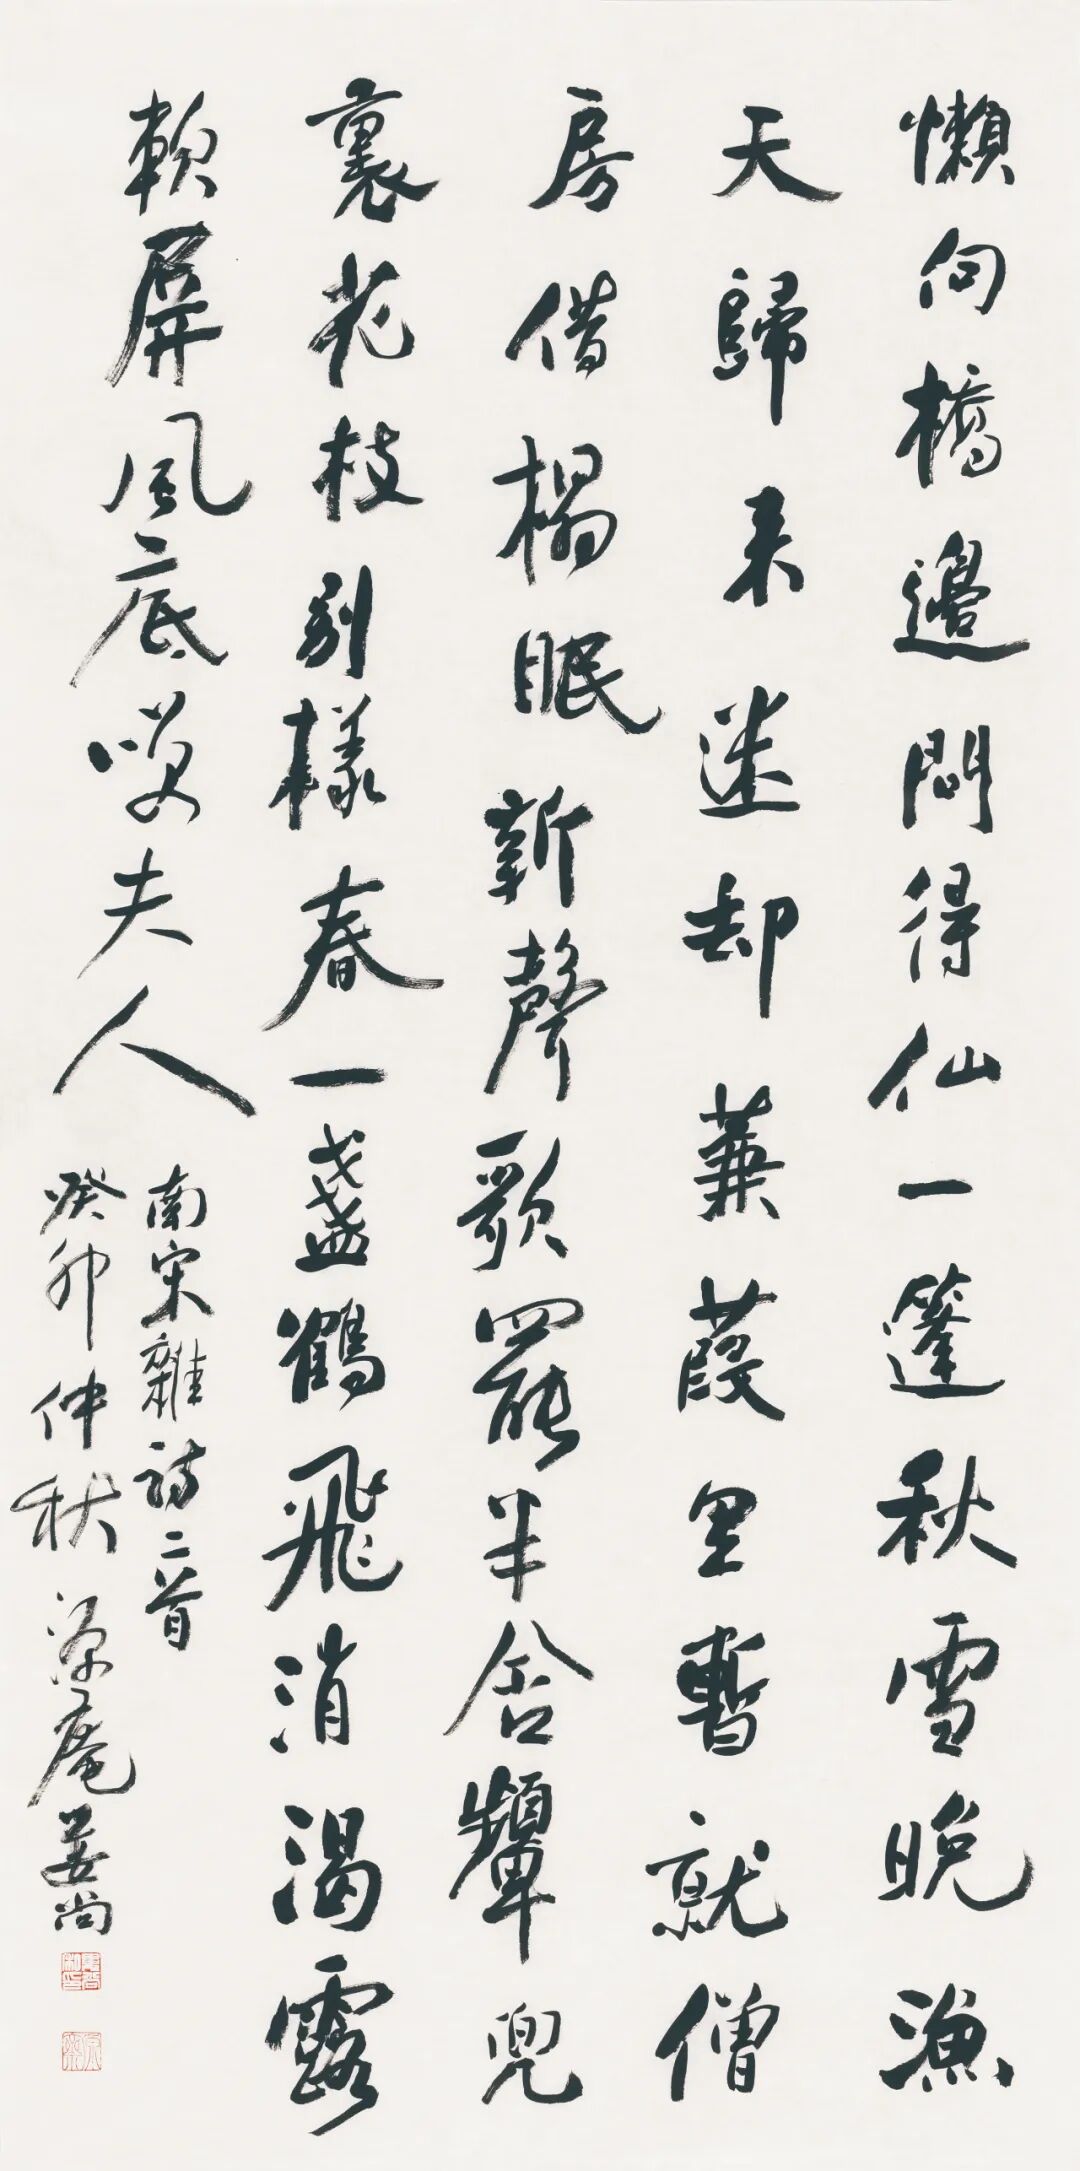 懶向橋邊問得仙一篷秋雪晚漁
天歸來迷却蒹葭里暫就僧
房借榻眠新聲歌罷半含顰兜
裏花枝别樣春一盞鶴飛消渴露
軟屏風底喚夫人
南宋雜詩二首
癸卯仲秋源庵姜尚